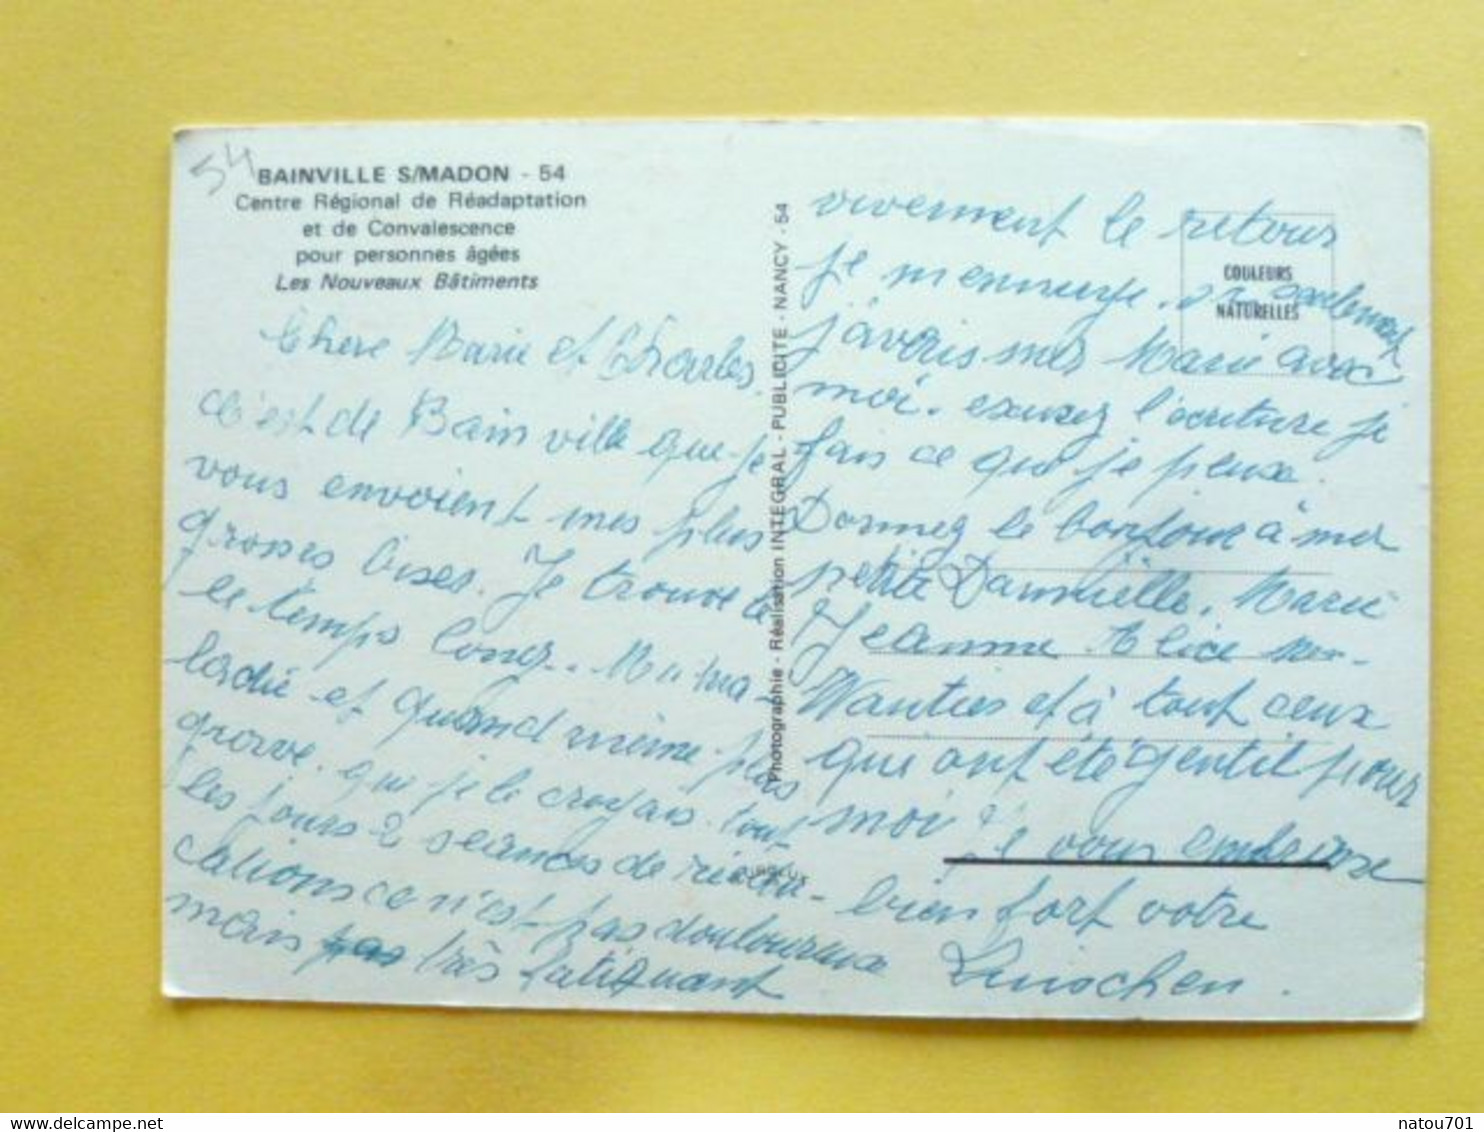 54
BAINVILLE S/MADON - 54
Centre Régional de Réadaptation
et de Convalescence
pour personnes âgées
Les Nouveaux Bâtiments
Chere Marie et Charles.
C'est de Bainville que je
vous envoient mes plus
grosses bises. Je trouve le
le temps long. Ma ma-
ladie et quand même plus
grave. que je le croyais. tout
les jours 2 séances de rééedu-
cations ce n'est pas douloureux
mais pas très fatiguant
Photographie - Réalisation INTEGRAL - PUBLICITE - NANCY - 54
COULEURS
NATURELLES
vivement le retour
je m'ennuye. si seulement
j'avais mes Marie avec
moi. excusez l'écriture je
fais ce que je peux.
Donnez le bonjour à ma
petite Dannielle. Marie
Jeanne Alice
et à tout ceux
qui ont été gentil pour
moi. Je vous embrasse
bien fort votre
natou701